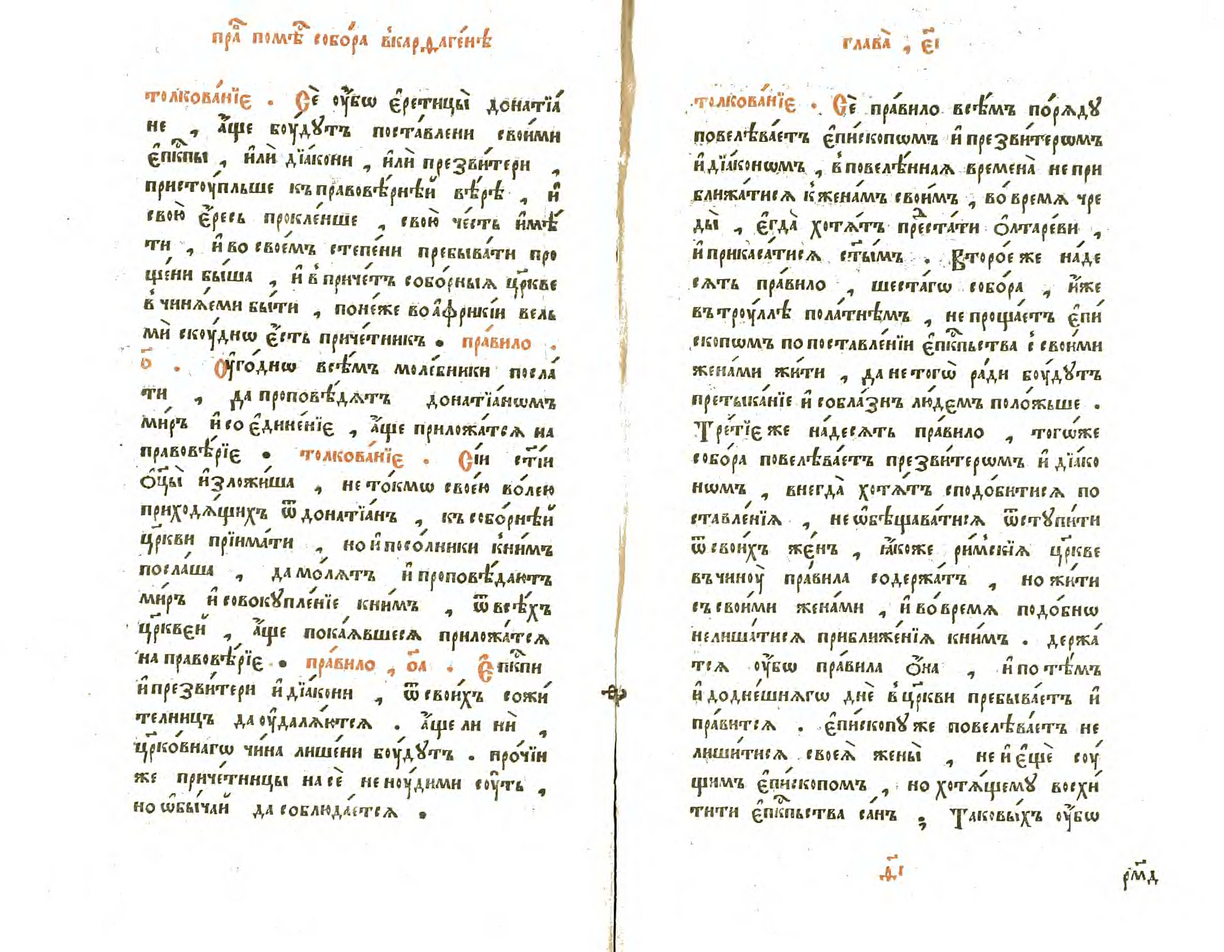 пра̑ помѣ̑ собо́ра в̾карѳаге́нѣ
толкова́нїе . Сѐ ᲂу҆́бѡ є҆ретицы̀ донатїа́
не , а҆́ще бꙋ́дꙋтъ поста́влени свои́ми
є҆пⷭ҇кпы , и҆лѝ дїа́кони , и҆лѝ презви́тери ,
пристꙋ́пльше къправовѣ́рнѣй вѣ́рѣ , и҆
свою̀ є҆́ресь прокле́нше , свою̀ че́сть и҆мѣ́
ти , и҆ во свое́мъ степе́ни пребыва́ти про
ще́ни бы́ша , и҆ в̾при́четъ собо́рныѧ цр҃кве
в̾чинѧ́еми бы́ти , поне́же воа҆фрикі́и вель
мѝ скꙋ́днѡ є҆́сть приче́тник . пра́вило .
о҃ . Оу҆го́днѡ всѣ́мъ моле́бники посла́
ти , да проповѣ́дѧтъ донатїа́нѡмъ
ми́ръ и҆ со є҆дине́нїе , а҆́ще приложа́тсѧ на
правовѣ́рїе . толкова́нїе . Сі́и ст҃і́и
ѻ҆ц҃ы̀ и҆зложи́ша , не то́кмѡ свое́ю во́лею
приходѧ́щихъ ѿ донатїа́нъ , къ собо́рнѣй
цр҃кви прїима́ти , но и҆ посо́лники к̾ни́мъ
посла́ша , да мо́лѧтъ и҆ проповѣ́даютъ
ми́ръ и҆ совокꙋпле́нїе кни́мъ , ѿ всѣ́хъ
цр҃квей , а҆́ще пока́ѧвшесѧ приложа́тсѧ
на правовѣ́рїе . пра́вило , о҃а . Є҆пⷭ҇кпи
и҆ презви́тери и҆ дїа́кони , ѿ свои́хъ сожи́
телницъ да ᲂу҆далѧ́ютсѧ . а҆́ще ли нѝ ,
цр҃ко́внагѡ чи́на лише́ни бꙋ́дꙋтъ . про́чїи
же приче́тницы на сѐ не нꙋ́дими сꙋ́ть ,
но ѡ҆бы́чай да соблюда́етсѧ .
глава̀ , є҃і
толкова́нїе . Сѐ пра́вило всѣ́мъ по́рѧдꙋ
повелѣва́етъ є҆пи́скопѡмъ и҆ презви́терѡмъ
и҆ дїа́конѡмъ , в̾повелѣ́нная времена̀ не при
ближа́тисѧ к̾жена́мъ свои́мъ , во вре́мѧ чре
ды̀ , є҆гда̀ хотѧ́тъ прⷣеста́ти ѻ҆лтаре́ви ,
и҆ прикаса́тисѧ ст҃ы́мъ . Второ́е же на́де
сѧть пра́вило , шеста́гѡ собо́ра , и҆́же
въ трꙋ́ллѣ пола́тнѣмъ , не проща́етъ є҆пи́
скопѡмъ по поставле́нїи є҆пⷭ҇кпьства с̾ свои́ми
жена́ми жи́ти , да не тогѡ̀ ра́ди бꙋ́дꙋтъ
претыка́нїе и҆ собла́знъ лю́демъ поло́жьше .
Тре́тїе же на́десѧть пра́вило , тогѡ́же
собо́ра повелѣва́етъ презви́терѡмъ и҆ дїа́ко
нѡмъ , внегда̀ хотѧ́тъ сподо́битисѧ по
ставле́нїѧ , не ѡ҆бѣщава́тисѧ ѿступи́ти
ѿ свои́хъ же́нъ , ꙗ҆́коже ри́мскїѧ цр҃кве
въ чинꙋ̀ пра́вила содержа́тъ , но жи́ти
съ свои́ми жена́ми , и҆ во вре́мѧ подо́бнѡ
не лиша́тисѧ приближе́нїѧ к̾ни́мъ . держа́
тсѧ ᲂу҆́бѡ пра́вила ѻ҆́на , и҆ по тѣ́мъ
и҆ до дне́шнѧгѡ днѐ в̾цр҃кви пребыва́етъ и҆
пра́витсѧ . є҆пи́скопꙋ же повелѣва́етъ не
лиши́тисѧ своеѧ̀ жены̀ , не и҆ є҆щѐ сꙋ́
щимъ є҆пи́скопомъ , но хотѧ́щемꙋ восхи́
тити є҆пⷭ҇кпьства са́нъ ; Таковы́хъ ᲂу҆́бѡ
д҃і
рм҃д